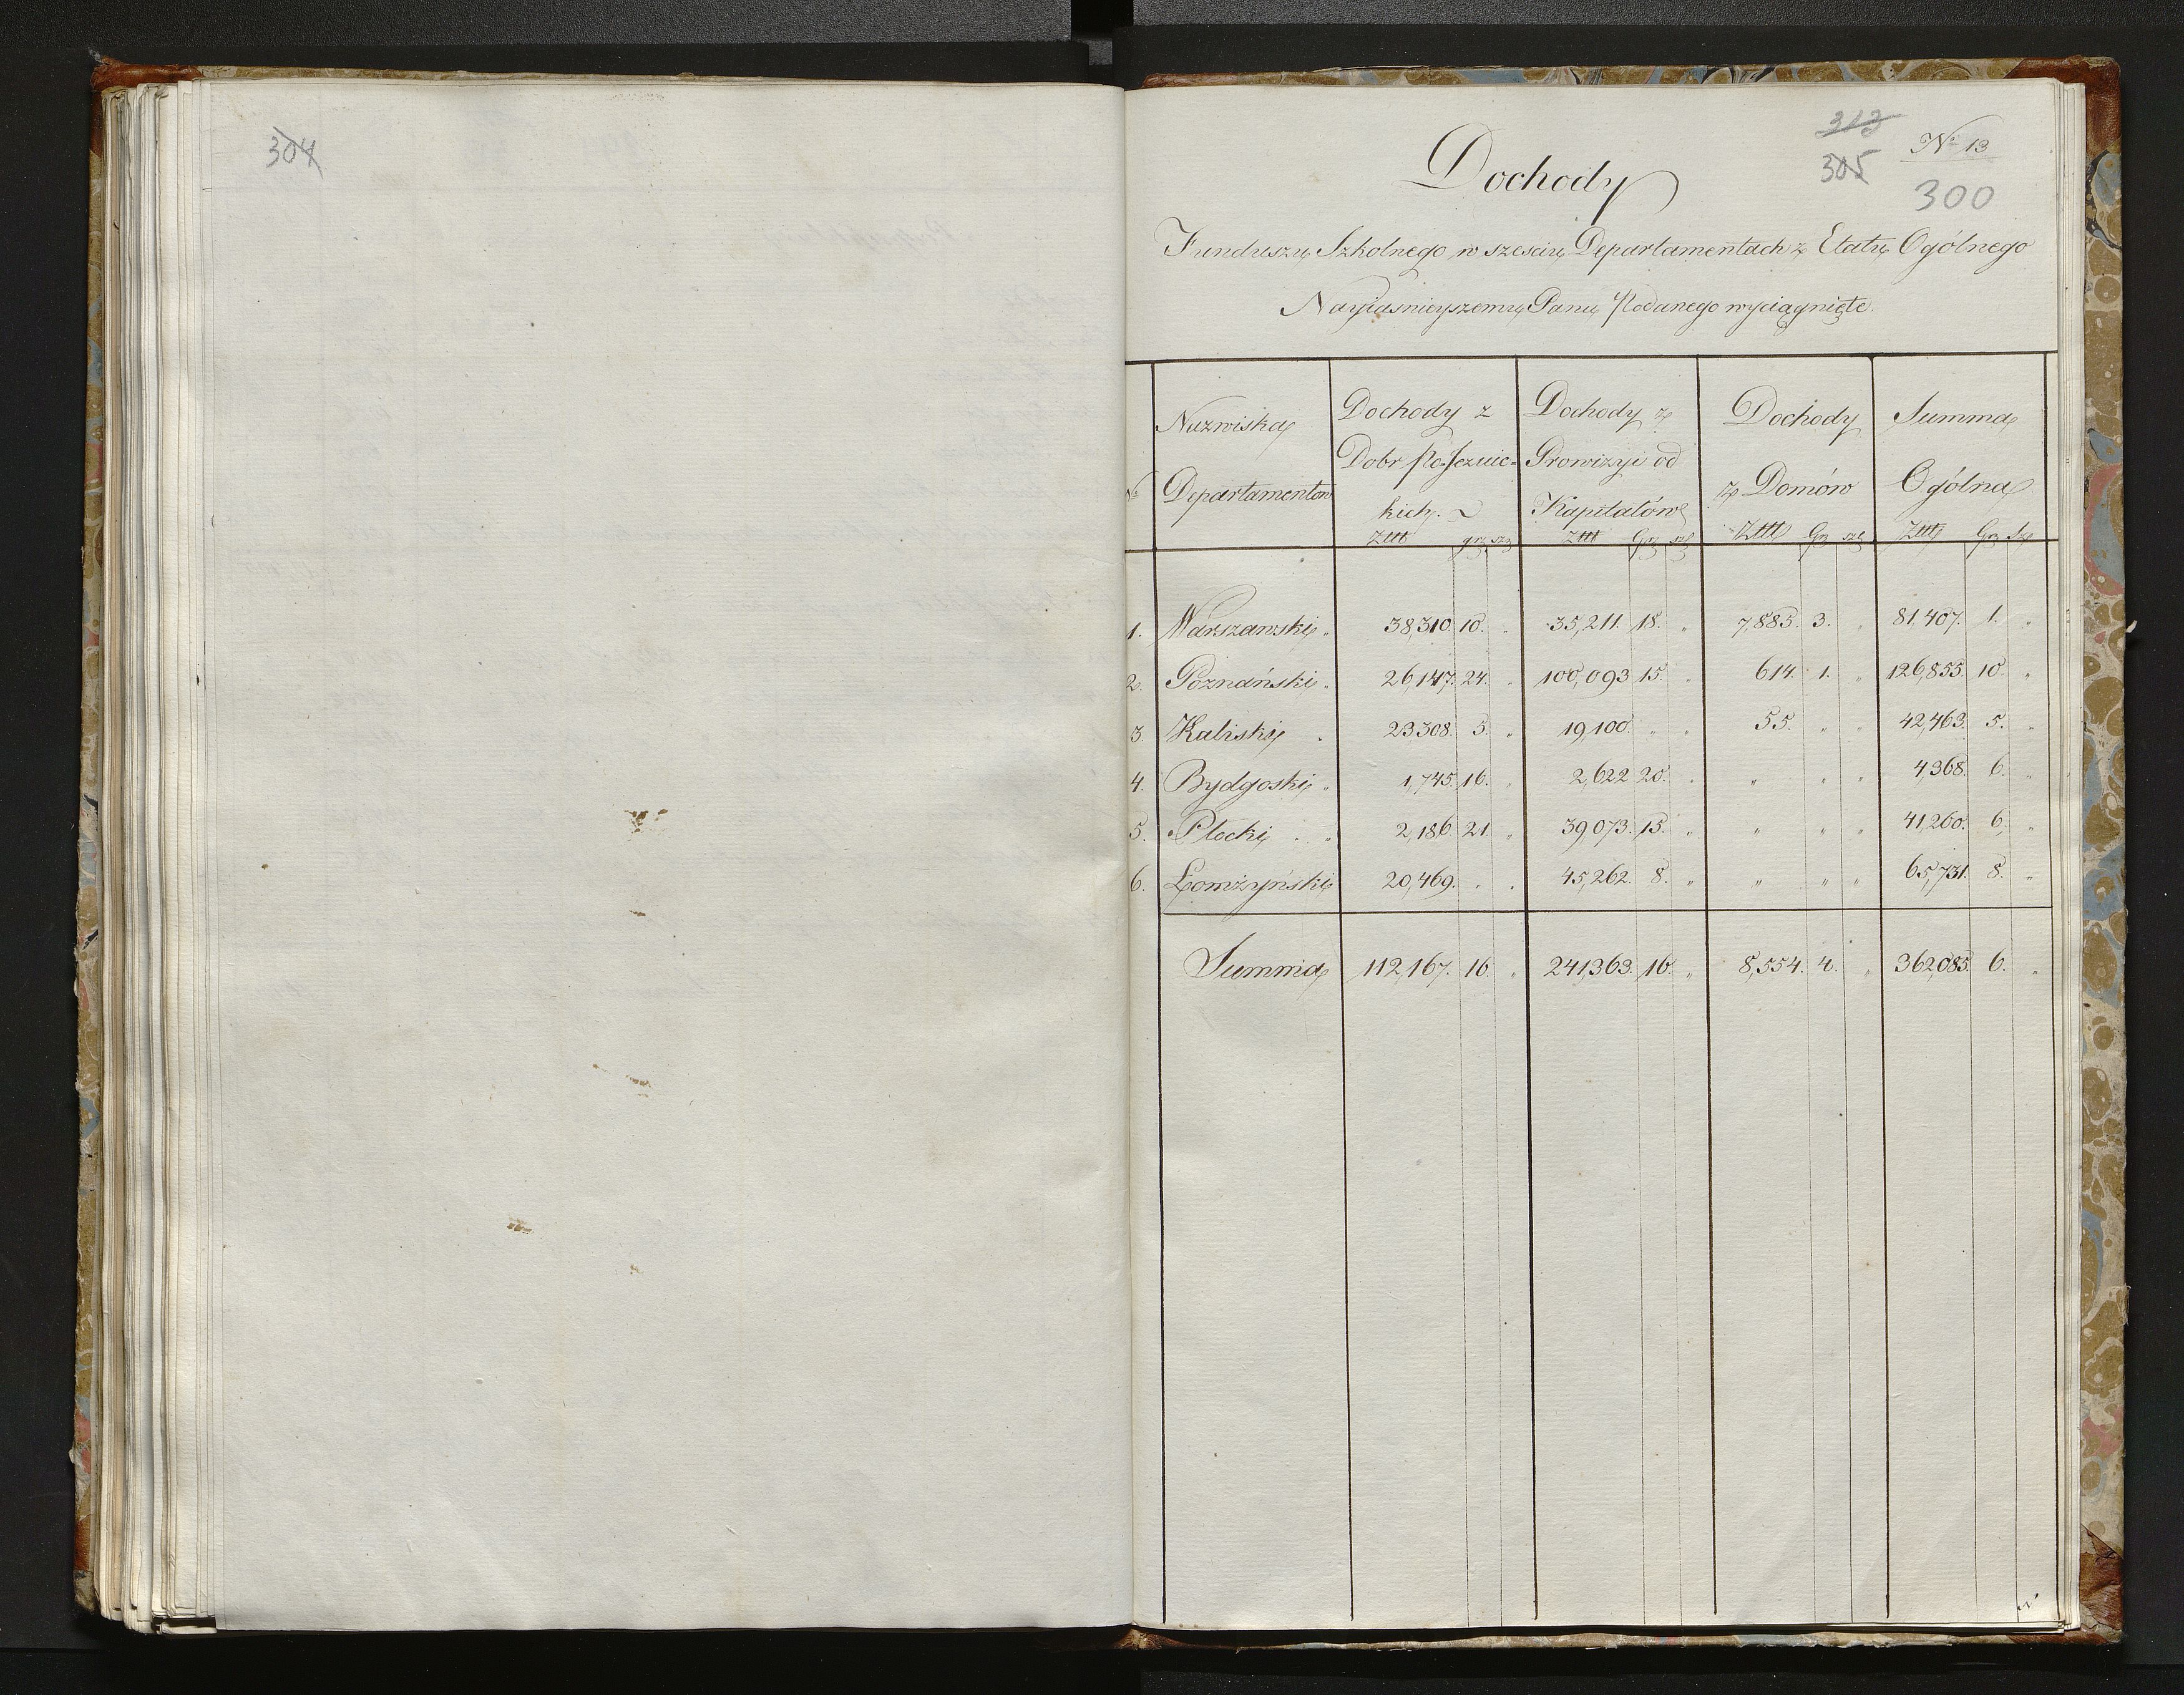 304
313
305
Nо 13
300
Dochody
Funduszu Szkolnego w szesciu Departamentach z Etatu Ogólnego
Nayiasnieyszemu Panu Podanego wyciągnięte.
No | Nazwiska Departamentow | Dochody z Dobr Pojezuickich. | Dochody z Prowizyi od Kapitalów | Dochody z Domów | Summa Ogólna
Zttt gr sz | Zttt Gr sz | Zttt Gr sz | Zttt Gr Sz
1. Warszawski " 38,310. 10. " 35,211. 18. " 7,885. 3. " 81.407. 1. "
2. Poznański " 26,147. 24. " 100,093 15. " 614. 1. " 126,855. 10. "
3. Kaliski " 23.308. 5. " 19,100. " " 55. " " 42,463. 5. "
4. Bydgoski " 1,745. 16. " 2,622 20. " " " " 4,368. 6. "
5. Płocki " " 2,186. 21. " 39,073. 15. " " " " 41,260. 6. "
6. Łomżyński 20,469. " " 45,262. 8. " " " " 65,731. 8. "
Summa 112,167. 16. " 241,363. 16. " 8,554. 4. " 362,085. 6. "